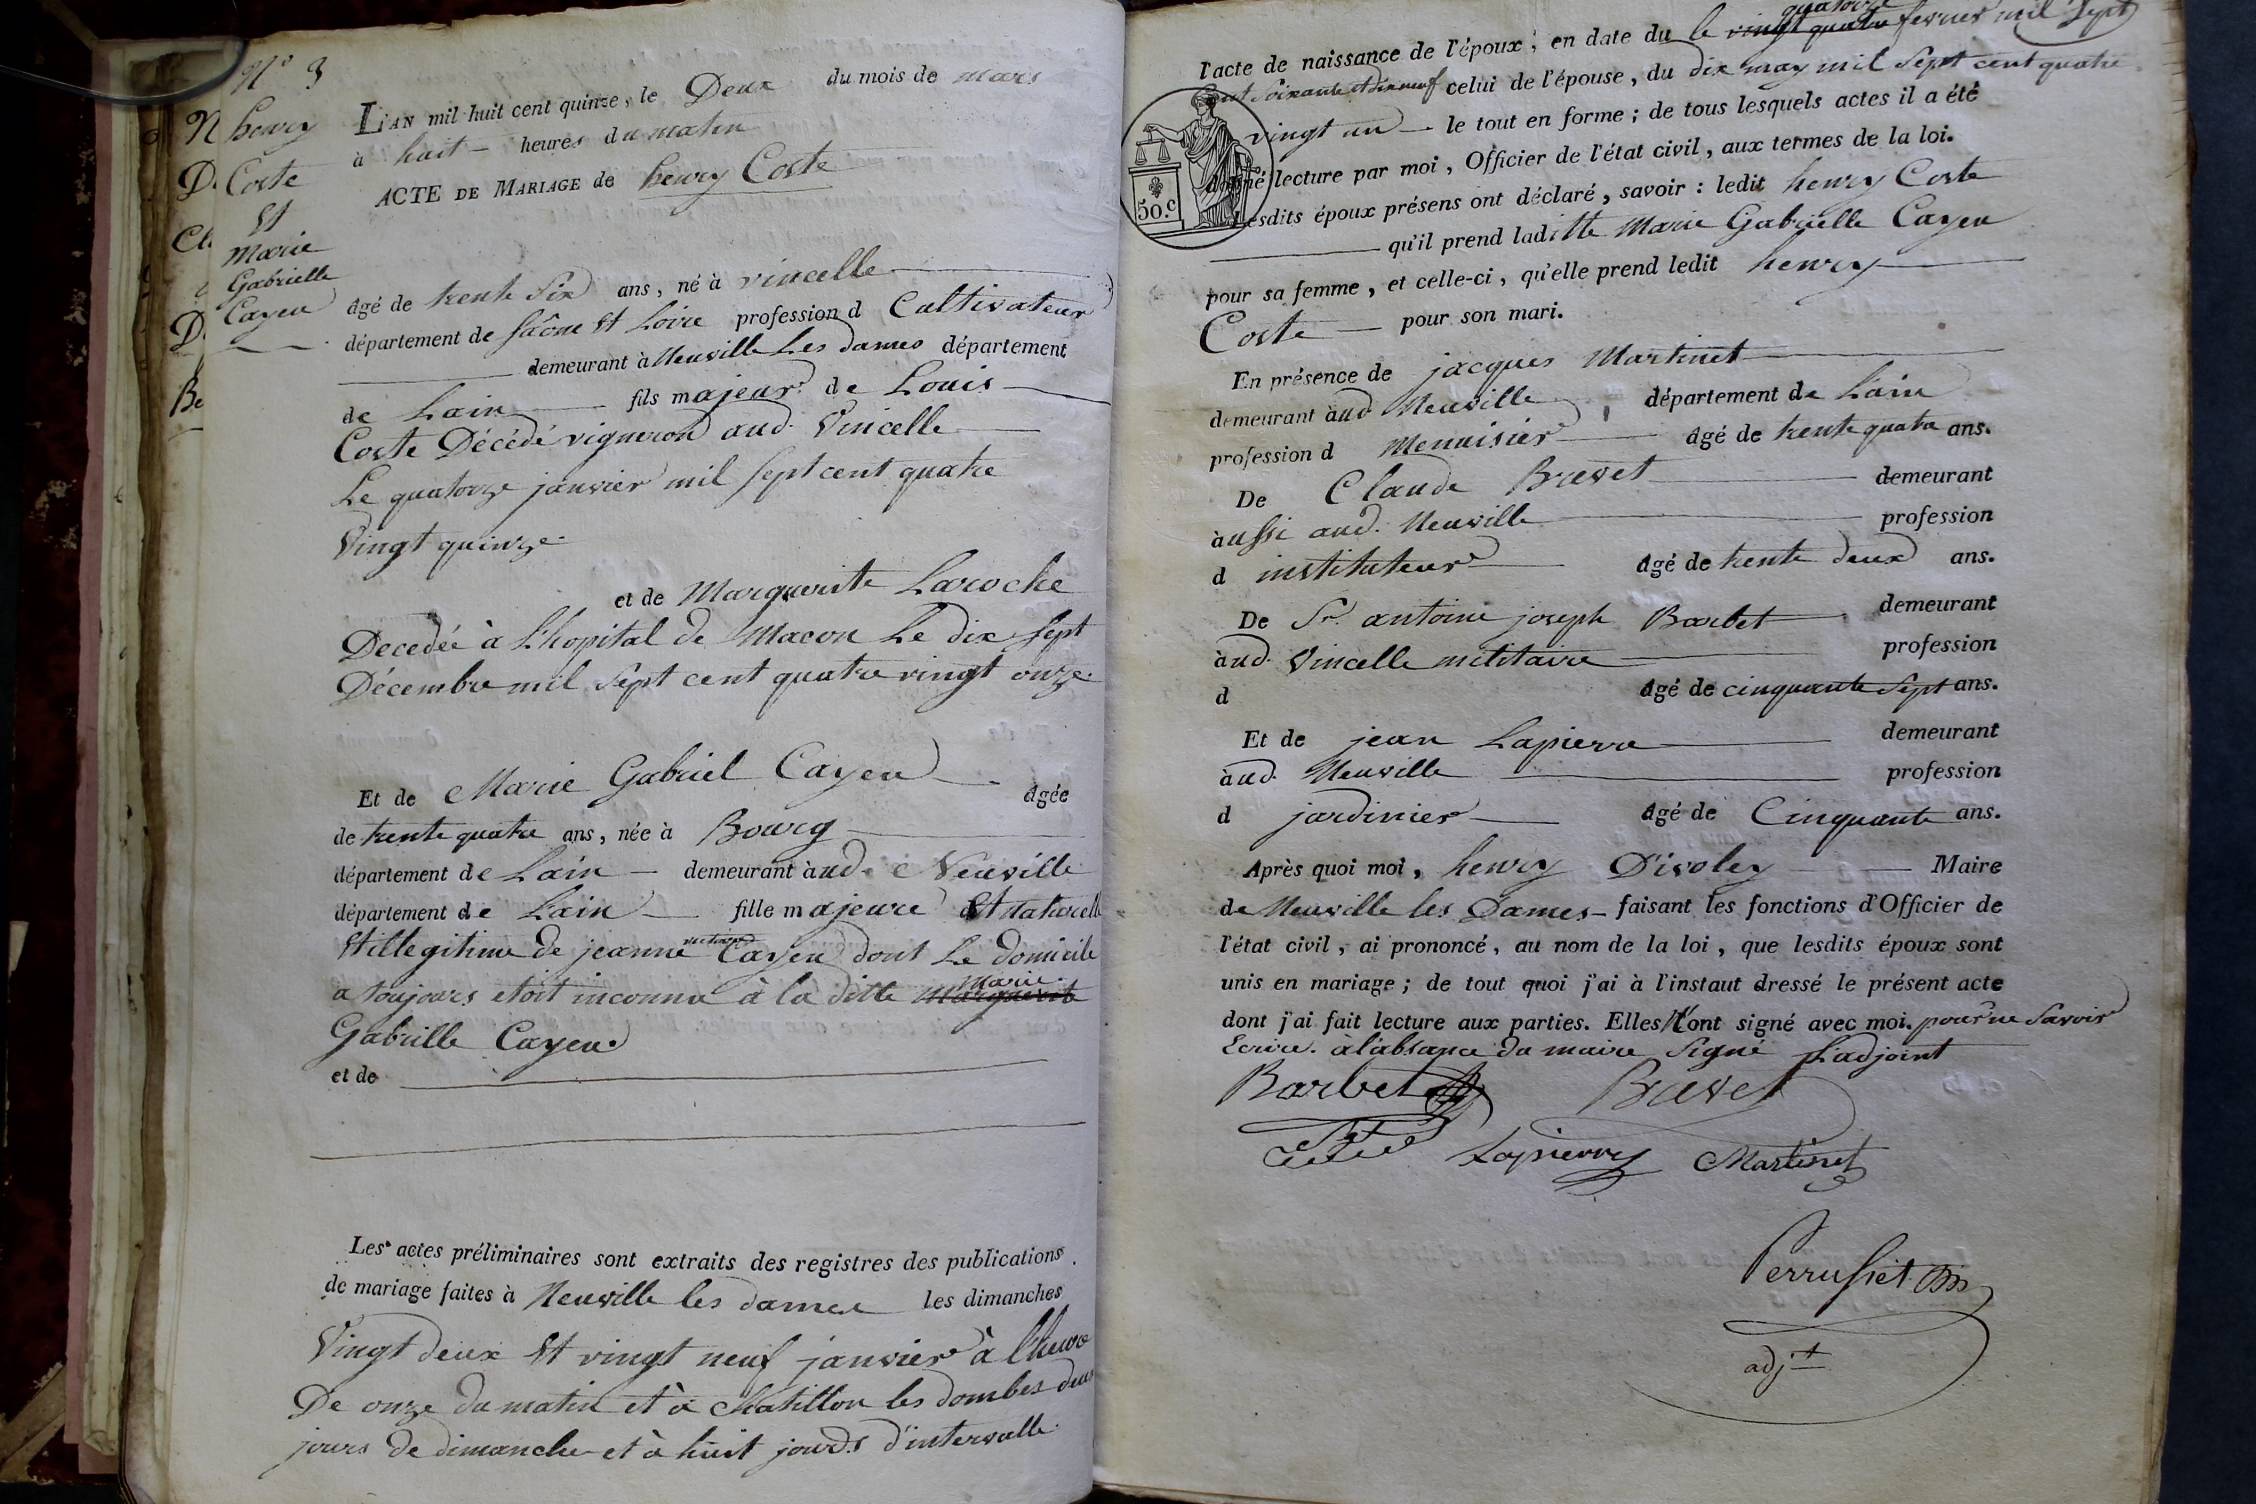 N° 3
henry
Coste
Et
Marie
Gabrielle
Cayen
N
D.
Cl
D.
Be
L'AN mil huit cent quinze, le Deux du mois de mars
à huit heures du matin
ACTE DE MARIAGE de henry Coste
agé de trente Six ans, né à vincelle
département de Saône Et Loire profession d Cultivateur
demeurant à Neuville Les dames département
de Lain fils majeur de Louis
Coste Décédé vigneron aud. Vincelle
Le quatorze janvier mil sept cent quatre
Vingt quinze
et de Marguerite Laroche
Decedée à L'hopital de Macon Le dix sept
Décembre mil sept cent quatre vingt onze
Et de Marie Gabriel Cayen agée
de trente quatre ans, née à Bourg
département de Lain demeurant à aud. Neuville
département de Lain fille majeure Et naturelle
Et illegitime de jeanne Cayen dont Le domicile
a toujours etoit inconnu à la ditte Marguerite Marie
Gabrille Cayen
et de
Les actes préliminaires sont extraits des registres des publications
de mariage faites à Neuville les dames les dimanches
Vingt deux Et vingt neuf janvier à lheure
De onze du matin et à Chatillon les dombes deux
jours de dimanche et à huit jours d'intervalle
l'acte de naissance de l'époux, en date du le vingt quatre quatorze fevrier mil Sept
cent soixante et dix neuf celui de l'épouse, du dix may mil Sept cent quatre
vingt un le tout en forme; de tous lesquels actes il a été
donné lecture par moi, Officier de l'état civil, aux termes de la loi.
50.c
Lesdits époux présens ont déclaré, savoir: ledit henry Coste
qu'il prend laditte Marie Gabrielle Cayen
pour sa femme, et celle-ci, qu'elle prend ledit henry
Coste pour son mari.
En présence de jacques Martinet
demeurant à aud Neuville, département de Lain
profession d Menuisier agé de trente quatre ans.
De Claude Brevet demeurant
à aussi aud. Neuville profession
d instituteur agé de trente deux ans.
De Sr. antoine joseph Barbet demeurant
à aud. Vincelle militaire profession
d agé de cinquante Sept ans.
Et de jean Lapierre demeurant
à aud. Neuville profession
d jardinier agé de Cinquante ans.
Après quoi moi, henry D'ivoley Maire
de Neuville les Dames faisant les fonctions d'Officier de
l'état civil, ai prononcé, au nom de la loi, que lesdits époux sont
unis en mariage; de tout quoi j'ai à l'instant dressé le présent acte
dont j'ai fait lecture aux parties. Elles N'ont signé avec moi. pour ne Savoir
Ecrire. à l'absance du maire Signé L'adjoint
Barbet Brevet
Lapierre Martinet
Perrussiet
adjt